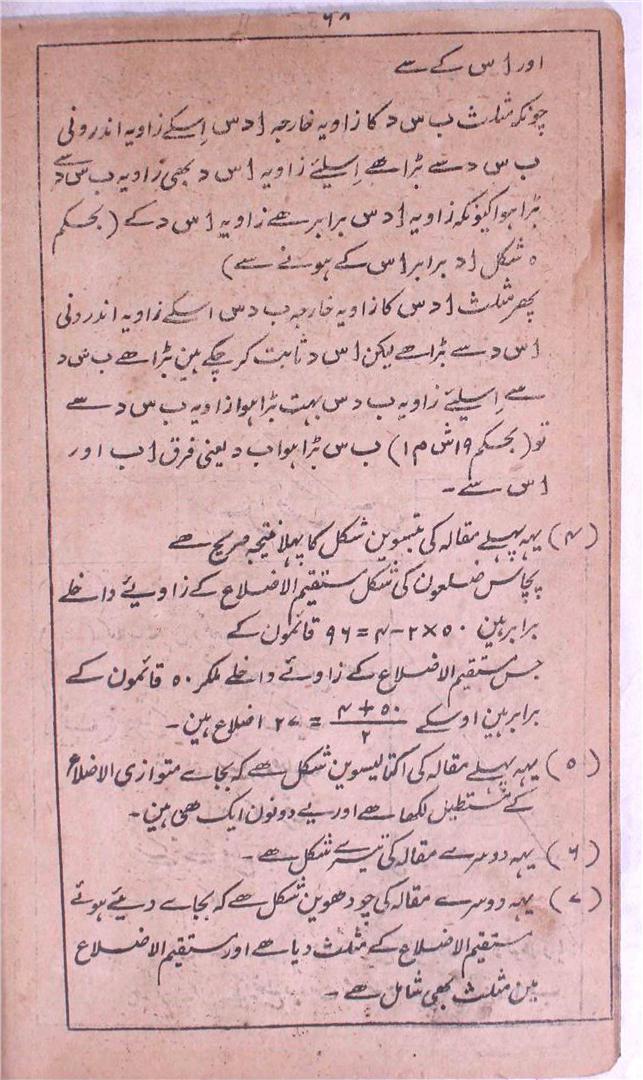 ۶۸
اور ا س کے سے
چونکہ مثلث ب س د کا زاویہ خارجہ ا د س اِسکے زاویہ اندرونی
ب س د سے بڑا ہے اِسلیئے زاویہ ا س د بھی زاویہ ب س د سے
بڑا ہوا کیونکہ زاویہ ا د س برابر ہے زاویہ ا س د کے (بحکم
۵ شکل ا د برابر ا س کے ہونے سے)
پھر مثلث ا د س کا زاویہ خارجہ ب د س اسکے زاویہ اندرونی
ا س د سے بڑا ہے لیکن ا س د ثابت کر چکے ہین بڑا ہے ب س د
سے اِسلیئے زاویہ ب د س بہت بڑا ہوا زاویہ ب س د سے
تو (بحکم ۱۹ ش م ۱) ب س بڑا ہوا ب د یعنی فرق ا ب اور
ا س سے ۔
(۴) یہہ پہلے مقالہ کی بتیسوین شکل کا پہلا نتیجہ صریح ہے
پچاس ضلعون کی شکل مستقیم الاضلاع کے زاویئے داخلے
برابر ہین ۵۰×۲−۴=۹۶ قائمون کے
جس مستقیم الاضلاع کے زاوئے داخلے ملکر ۵۰ قائمون کے
برابر ہین اوسکے ۵۰+۴/۲ = ۲۷ اضلاع ہین ۔
(۵) یہہ پہلے مقالہ کی اکتالیسوین شکل ہے کہ بجاے متوازی الاضلاع
کے مستطیل لکھا ہے اور یے دونون ایک ہی ہین ۔
(۶) یہہ دوسرے مقالہ کی تیسرے شکل ہے ۔
(۷) یہہ دوسرے مقالہ کی چودھوین شکل ہے کہ بجاے دیئے ہوئے
مستقیم الاضلاع کے مثلث دیا ہے اور مستقیم الاضلاع
مین مثلث بھی شامل ہے ۔